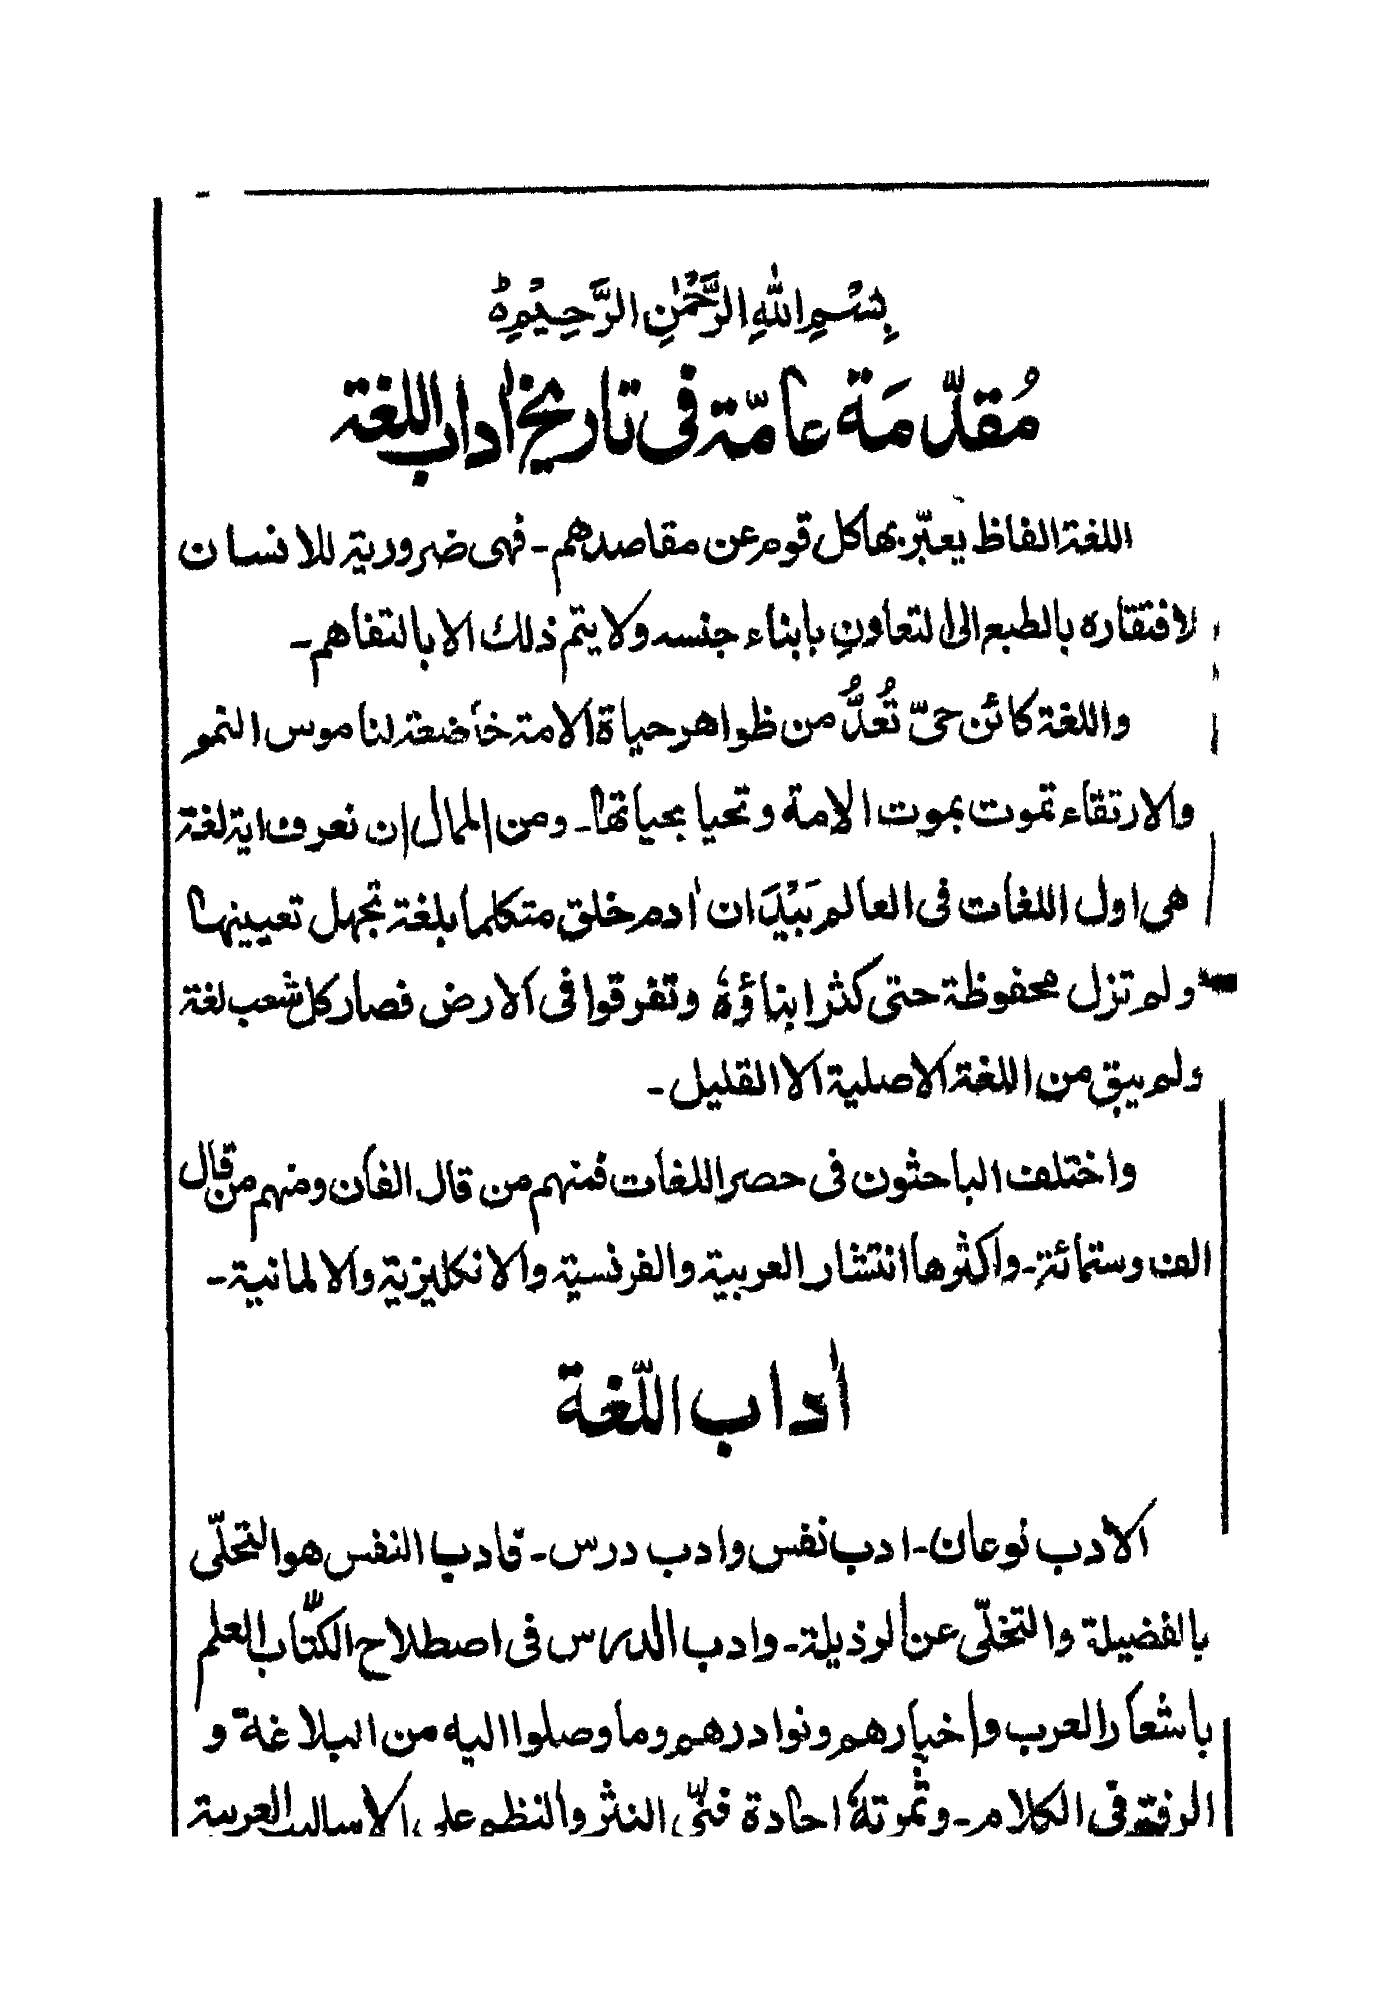 بِسْمِ اللهِ الرَّحْمٰنِ الرَّحِيْمِ
مُقدّمَة عامّة فى تاريخ اٰداب اللغة
اللغة الفاظ يعبّر بها كل قوم عن مقاصدهم - فهى ضرورية للانسان
لافتقاره بالطبع الى التعاون بابناء جنسه ولا يتم ذلك الا بالتفاهم -
واللغة كائن حىّ تُعدُّ من ظواهر حياة الامة خاضعة لناموس النمو
والارتقاء تموت بموت الامة وتحيا بحياتها - ومن المال ان نعرف اية لغة
هى اول اللغات فى العالم بَيْدَ ان اٰدم خلق متكلما بلغة نجهل تعيينها
ولم تزل محفوظة حتى كثر ابناؤهٗ وتفرقوا فى الارض فصار كل شعب لغة
ولم يبق من اللغة الاصلية الا القليل -
واختلف الباحثون فى حصر اللغات فمنهم من قال الفان ومنهم من قال
الف وستمائة - واكثرها انتشار العربية والفرنسية والانكليزية والالمانية -
اٰداب اللّغة
الادب نوعان - ادب نفس وادب درس - فادب النفس هو التحلّى
بالفضيلة والتخلّى عن الرذيلة - وادب الدرس فى اصطلاح الكتّاب العلم
باشعار العرب واخبارهم ونوادرهم وما وصلوا اليه من البلاغة و
الرقة فى الكلام - وثمرتهٗ اجادة فنّى النثر والنظم على الاساليب العربية